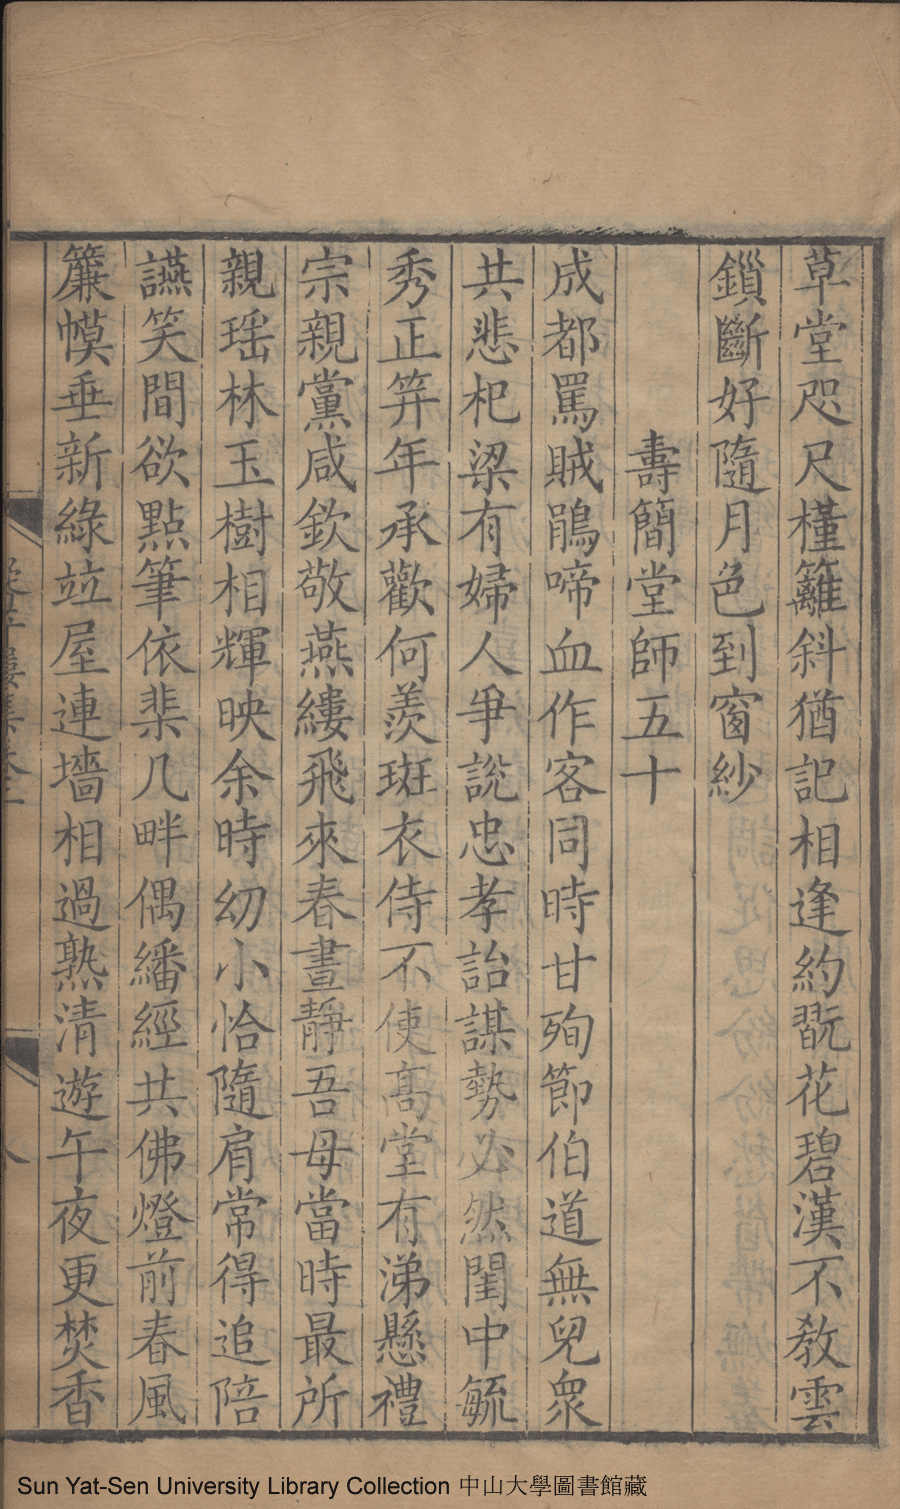 草堂咫尺槿籬斜猶記相逢約翫花碧漢不教雲
鎻斷好隨月色到窗紗
壽簡堂師五十
成都罵賊鵑啼血作客同時甘殉節伯道無兒衆
共悲杞梁有婦人爭說忠孝詒謀勢必然閨中毓
秀正笄年承歡何羨斑衣侍不使髙堂有涕懸禮
宗親黨咸欽敬燕縷飛來春晝靜吾母當時最所
親瑶林玉樹相輝映余時幼小恰隨肩常得追陪
讌笑間欲點筆依棐几畔偶繙經共佛燈前春風
簾幙垂新綠竝屋連墻相過熟清遊午夜更焚香
Sun Yat-Sen University Library Collection 中山大學圖書館藏